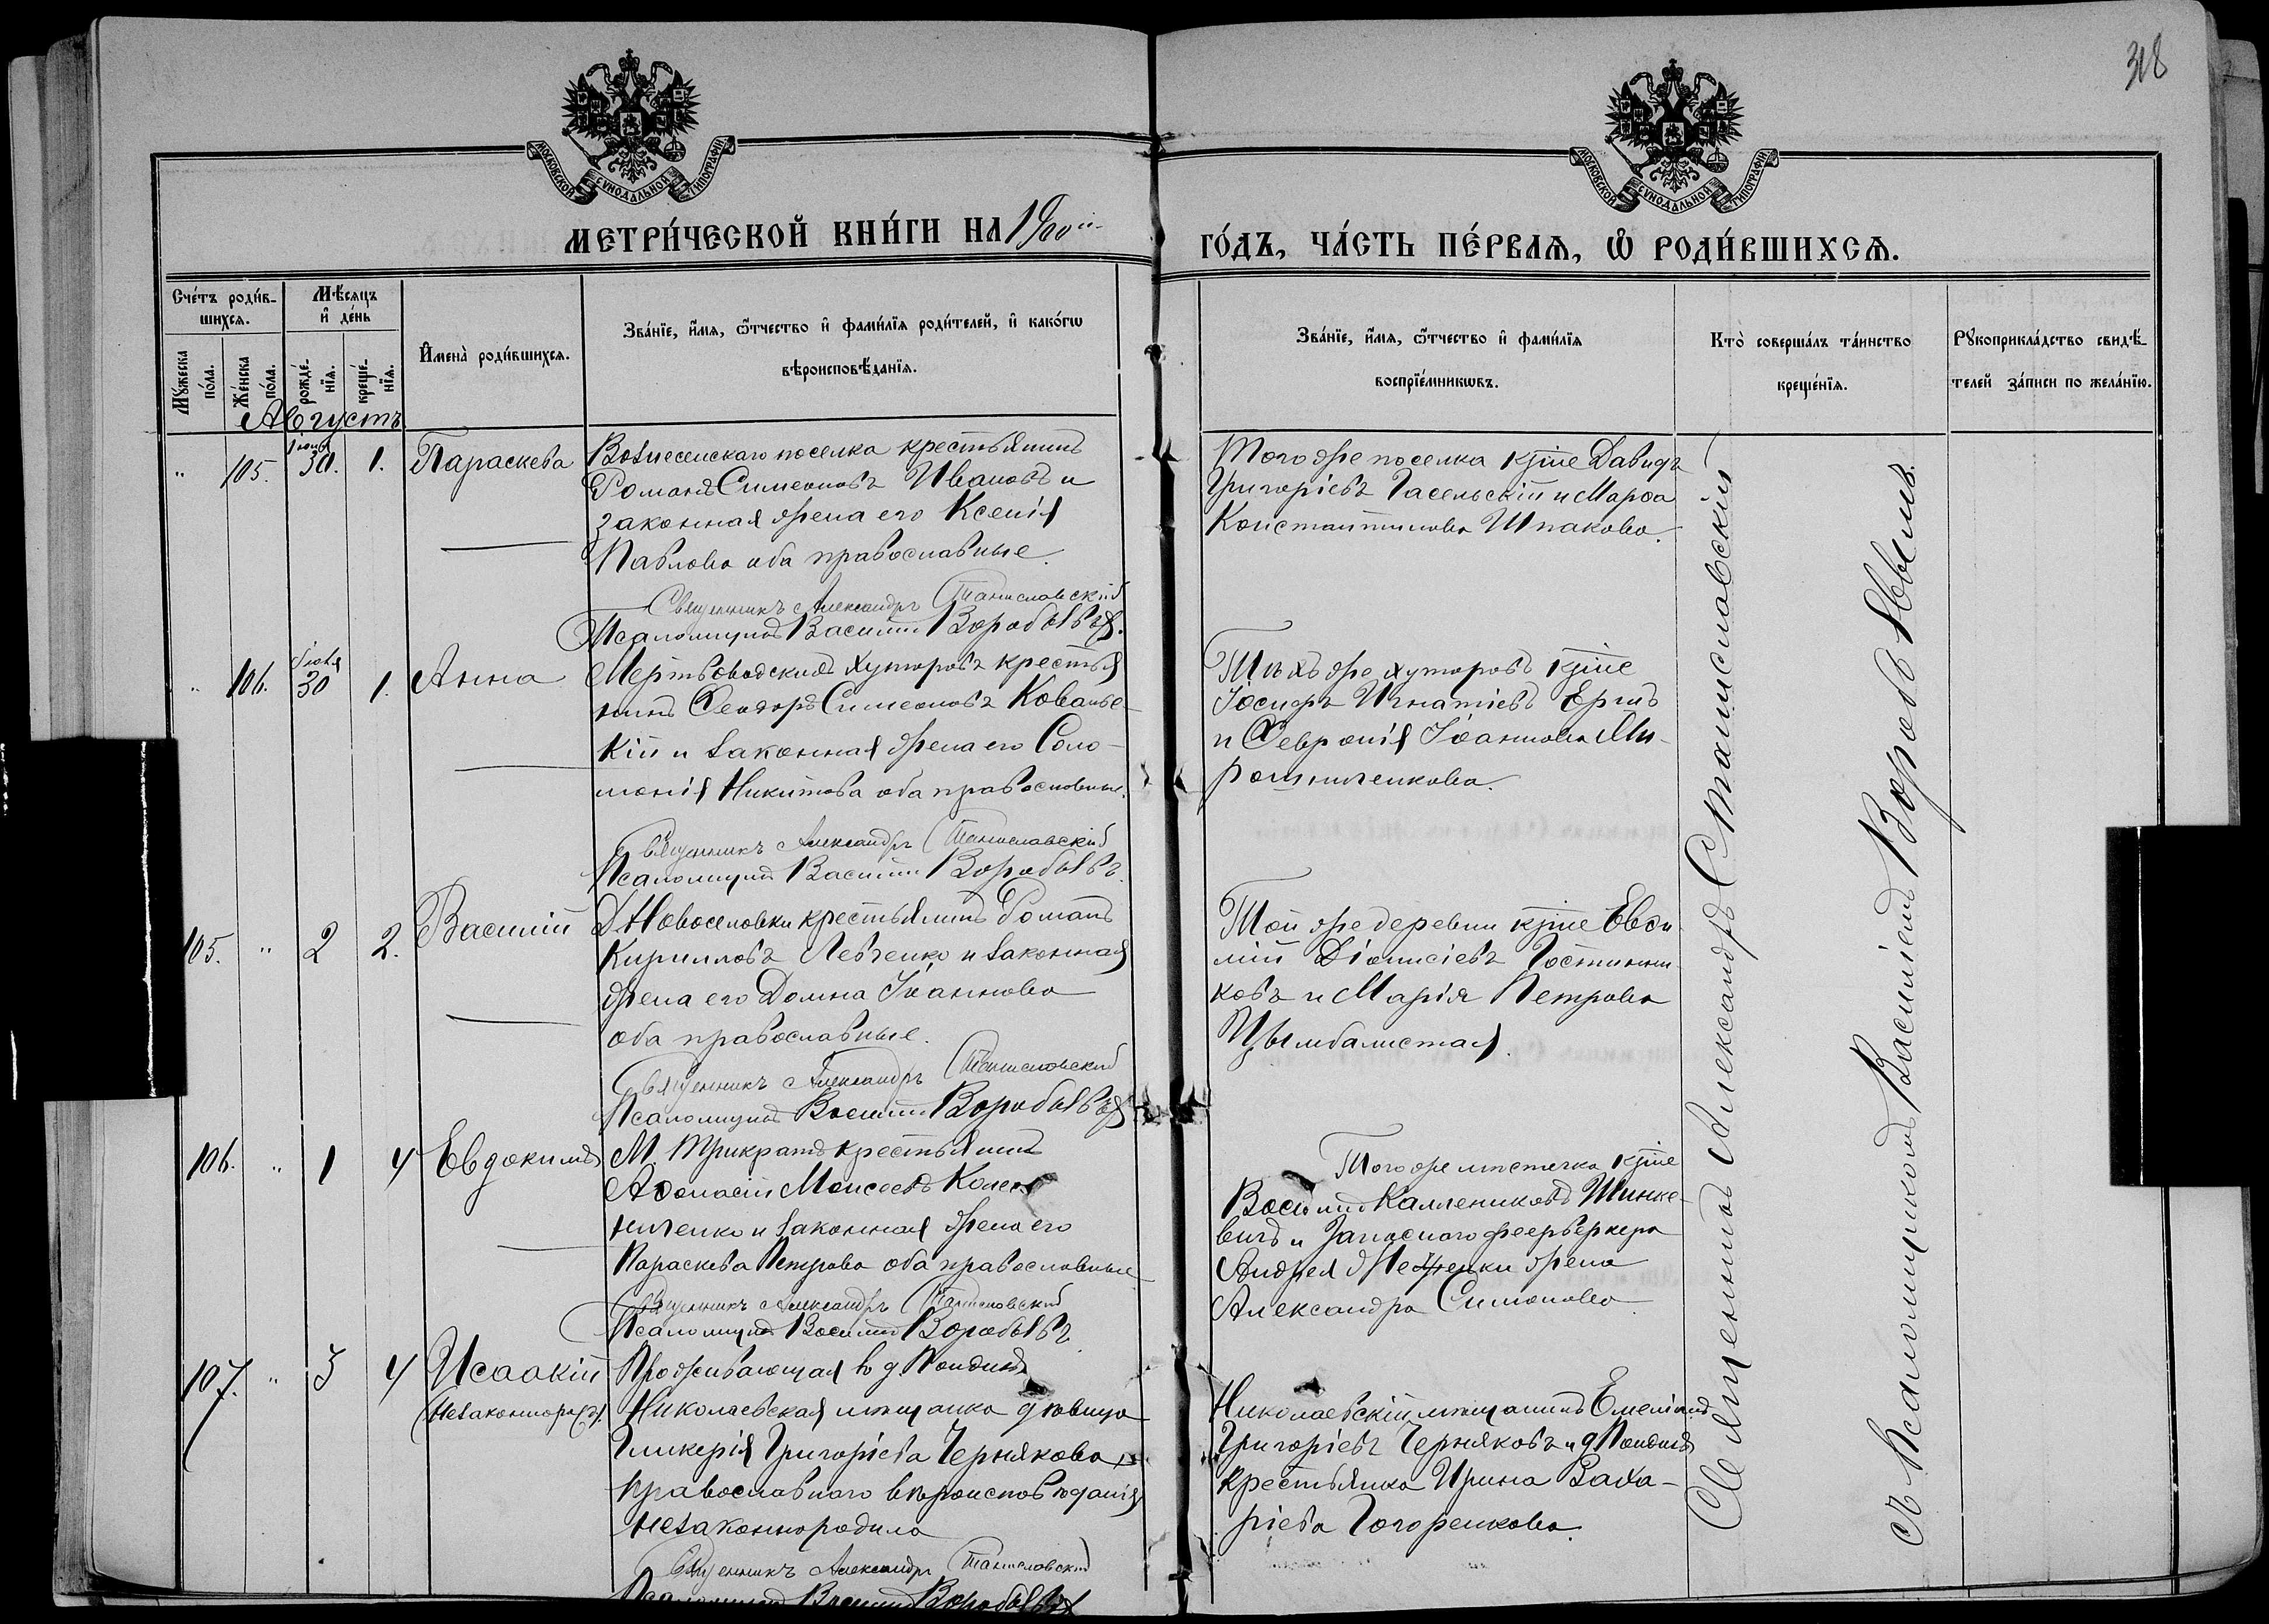 318
МОСКОВСКОЙ СѴНОДАЛЬНОЙ ТИПОГРАФІИ
МОСКОВСКОЙ СѴНОДАЛЬНОЙ ТИПОГРАФІИ
МЕТРИ́ЧЕСКОЙ КНИ́ГИ НА 1900й
ГО́ДЪ, ЧА́СТЬ ПЕ́РВАѦ, Ѡ҆ РОДИ́ВШИХСѦ.
Сче́тъ роди́в-
шихсѧ.
Мꙋжеска по́ла.
Же́нска по́ла.
Мѣ́сѧцъ
и҆ де́нь
рожде́-
нїѧ.
креще́-
нїѧ.
И҆мена̀ роди́вшихсѧ.
Зва́нїе, и҆́мѧ, ѻ҆́тчество и҆ фами́лїѧ роди́телей, и҆ како́гѡ
вѣроисповѣ́данїѧ.
Зва́нїе, и҆́мѧ, ѻ҆́тчество и҆ фами́лїѧ
воспрїе́мникѡвъ.
Кто̀ соверша́лъ та́инство
креще́нїѧ.
Рꙋкоприкла́дство свидѣ́-
телей за́писи по жела́нїю.
Августъ
" 105. Іюля 30. 1. Параскева
Вознесенскаго поселка крестьянинъ
Романъ Симеоновъ Ивановъ и
законная жена его Ксенія
Павлова оба православные.
Священникъ Александръ Станиславскій
Псаломщикъ Василій Воробьевъ.
Того же поселка кр͠не Давидъ
Григоріевъ Гасельскій и Марѳа
Константинова Шпакова.
" 106. Іюля 30 1. Анна
Мертвоводскихъ хуторовъ крестья
нинъ Ѳеодоръ Симеоновъ Ковальс-
кій и законная жена его Соло-
монія Никитова оба православные.
Священникъ Александръ Станиславскій
Псаломщикъ Василій Воробьевъ.
Тѣхъ же хуторовъ кр͠не
Іосифъ Игнатіевъ
и Ѳевронія Іоаннова Ми-
рошниченкова.
105. " 2 2. Василій
Д Новоселовки крестьянинъ Романъ
Кирилловъ Левченко и законная
жена его Домна Іоаннова
оба православные.
Священникъ Александръ Станиславскій
Псаломщикъ Василій Воробьевъ
Той же деревни кр͠не Евѳи
мій Діонисіевъ Гостинни-
ковъ и Марія Петрова
Цымбалистая.
106. " 1 4 Евдокимъ
М. Трикратъ крестьянинъ
Аѳанасій Моисеевъ
ниченко и законная жена его
Параскева Петрова оба православные
Священникъ Александръ Станиславскій
Псаломщикъ Василій Воробьевъ
Того же мѣстечка кр͠не
Василій Каллениковъ Шинке-
вичъ и Запаснаго феерверкера
Андрея жена
Александра Симонова
107. " 3 4 Исаакій
(незаконнорож).
Проживающая в д
Николаевская мѣщанка дѣвица
Гликерія Григоріева Чернякова,
православнаго вѣроисповѣданія
незаконнородила
Священникъ Александръ Станиславскій
Псаломщикъ Василій Воробьевъ
Николаевскій мѣщанинъ Емеліанъ
Григоріевъ Черняковъ и д
крестьянка Ирина Заха-
ріева Гогоренкова.
Священникъ Александръ Станиславскій
съ Псаломщикомъ Василіемъ Воробьевымъ.